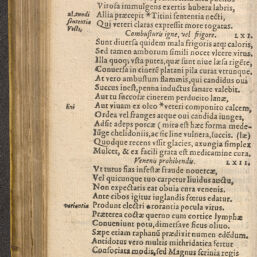 Virosa immulgens exertis hubera labris,
al. mūdi Allia præcepit *Titini sententia necti,
sententia Qui veteri claras expressit more togatas.
Vesti,
Combustis igne, vel frigore. LXI.
Sunt diversa quidem mala frigoris atq; caloris,
Sed tamen amborum simili nocet vlcere virus.
Illa quoq; vsta putes, quæ sunt niue læsa rigéte,
Conversa in cinerē platani pila curat vtrunque.
At vero ambustum flammis, qui candidus oui
Succus inest, penna inductus sanare valebit.
Aut tu succosæ cinerem perducito lanæ,
Eui Aut viuam ex oleo *veteri componito calcem,
Ordea vel franges atque oui candida iunges,
Adsit adeps porcæ (mira est hæc formæ mede-
Iüge chelidoniis, ac sic line vulnera, succis. (læ)
Quodque recens vssit glacies, axungia simplex
Mulcet, & ex facili grata est medicamine cura.
Venenis prohibendis. LXII.
Vt tutus fias infestæ fraude nouercæ,
Vel quicunque tuo carpetur liuidus auctu,
Non expectaris eat obuia cura venenis.
Ante cibos igitur iuglandis fœtus edatur.
variantia Produnt electri *rorantia pocula virus.
Præterea coctæ querno cum cortice lymphæ
Conueniunt potu, dimersave ficus oliuo.
Sæpe etiam raphani prædixit numen edēdum.
Antidotus vero multis mithridatica fertur
Consociata modis, sed Magnus scrinia regis